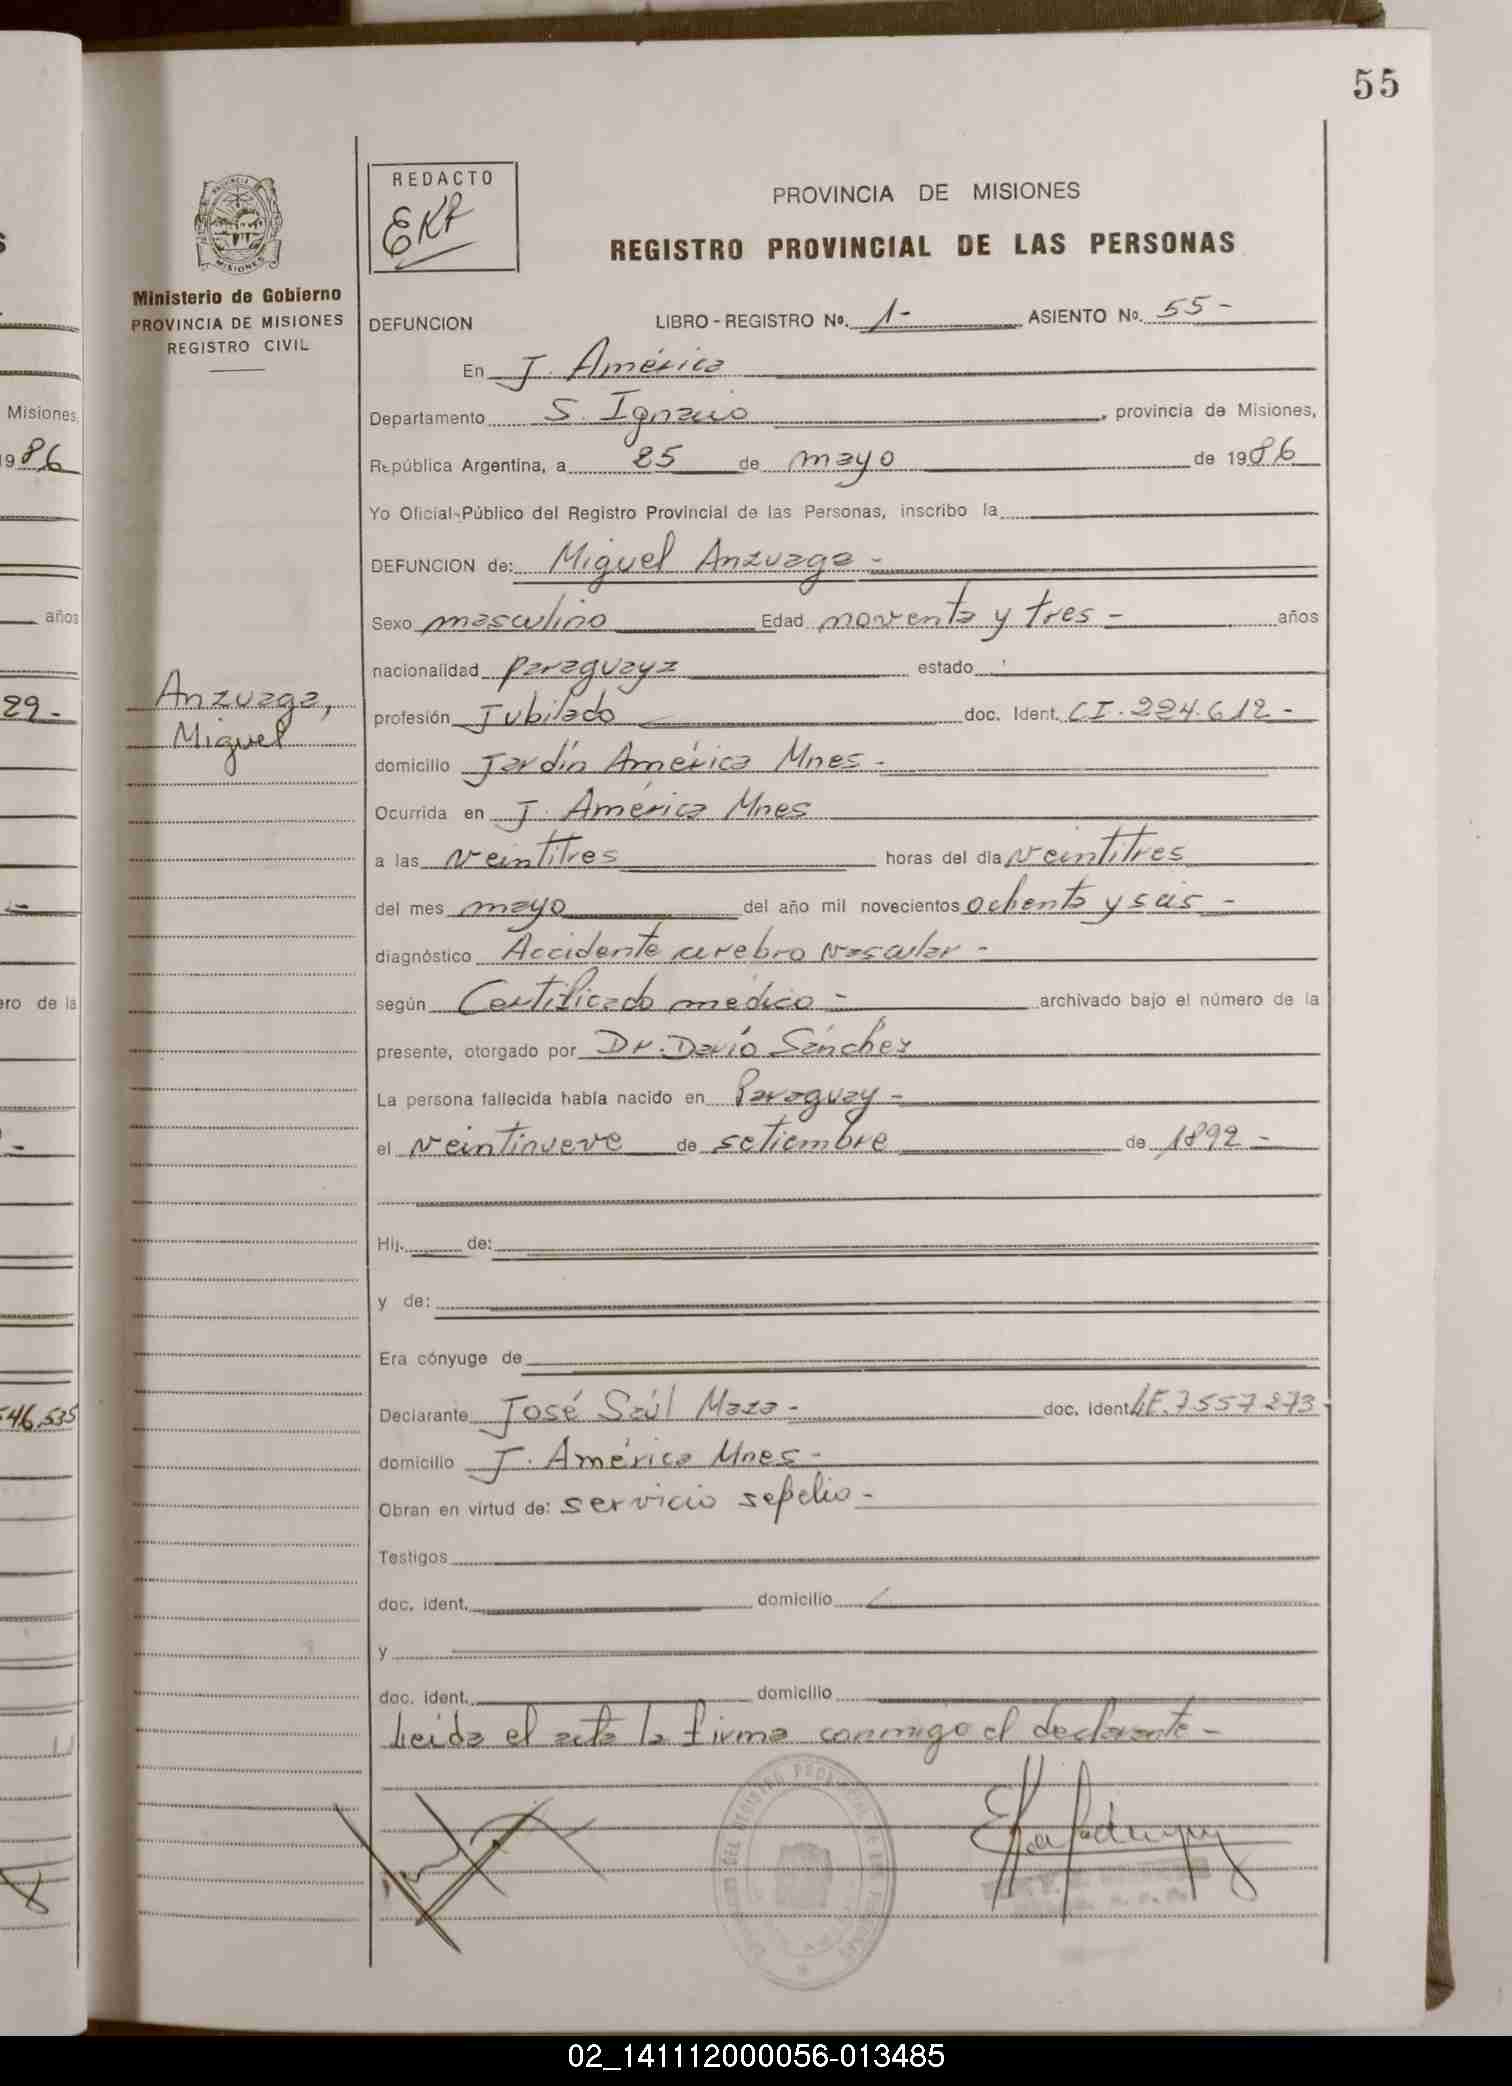 55
REDACTO
EKP
PROVINCIA DE MISIONES
REGISTRO PROVINCIAL DE LAS PERSONAS
Ministerio de Gobierno
PROVINCIA DE MISIONES
REGISTRO CIVIL
DEFUNCION LIBRO-REGISTRO No. 1- ASIENTO No. 55-
En J. América
Departamento S. Ignacio, provincia de Misiones,
República Argentina, a 25 de mayo de 1986
Yo Oficial Público del Registro Provincial de las Personas, inscribo la
DEFUNCION de: Miguel Anzuaga -
Sexo masculino Edad noventa y tres - años
nacionalidad paraguaya estado
Anzuaga,
Miguel
profesión Jubilado doc. Ident. CI. 224.612 -
domicilio Jardín América Mnes -
Ocurrida en J. América Mnes
a las veintitres horas del día veintitres
del mes mayo del año mil novecientos ochenta y seis -
diagnóstico Accidente cerebro vascular -
según Certificado médico - archivado bajo el número de la
presente, otorgado por Dr. Darío Sánchez
La persona fallecida había nacido en Paraguay -
el veintinueve de setiembre de 1892 -
Hij. de:
y de:
Era cónyuge de
Declarante José Saúl Maza - doc. ident LE. 7557273
domicilio J. América Mnes -
Obran en virtud de: servicio sepelio -
Testigos
doc. ident. domicilio
y
doc. ident. domicilio
Leida el acta la firma conmigo el declarante -
Misiones,
1986
años
29-
ero de la
546.535
02_141112000056-013485